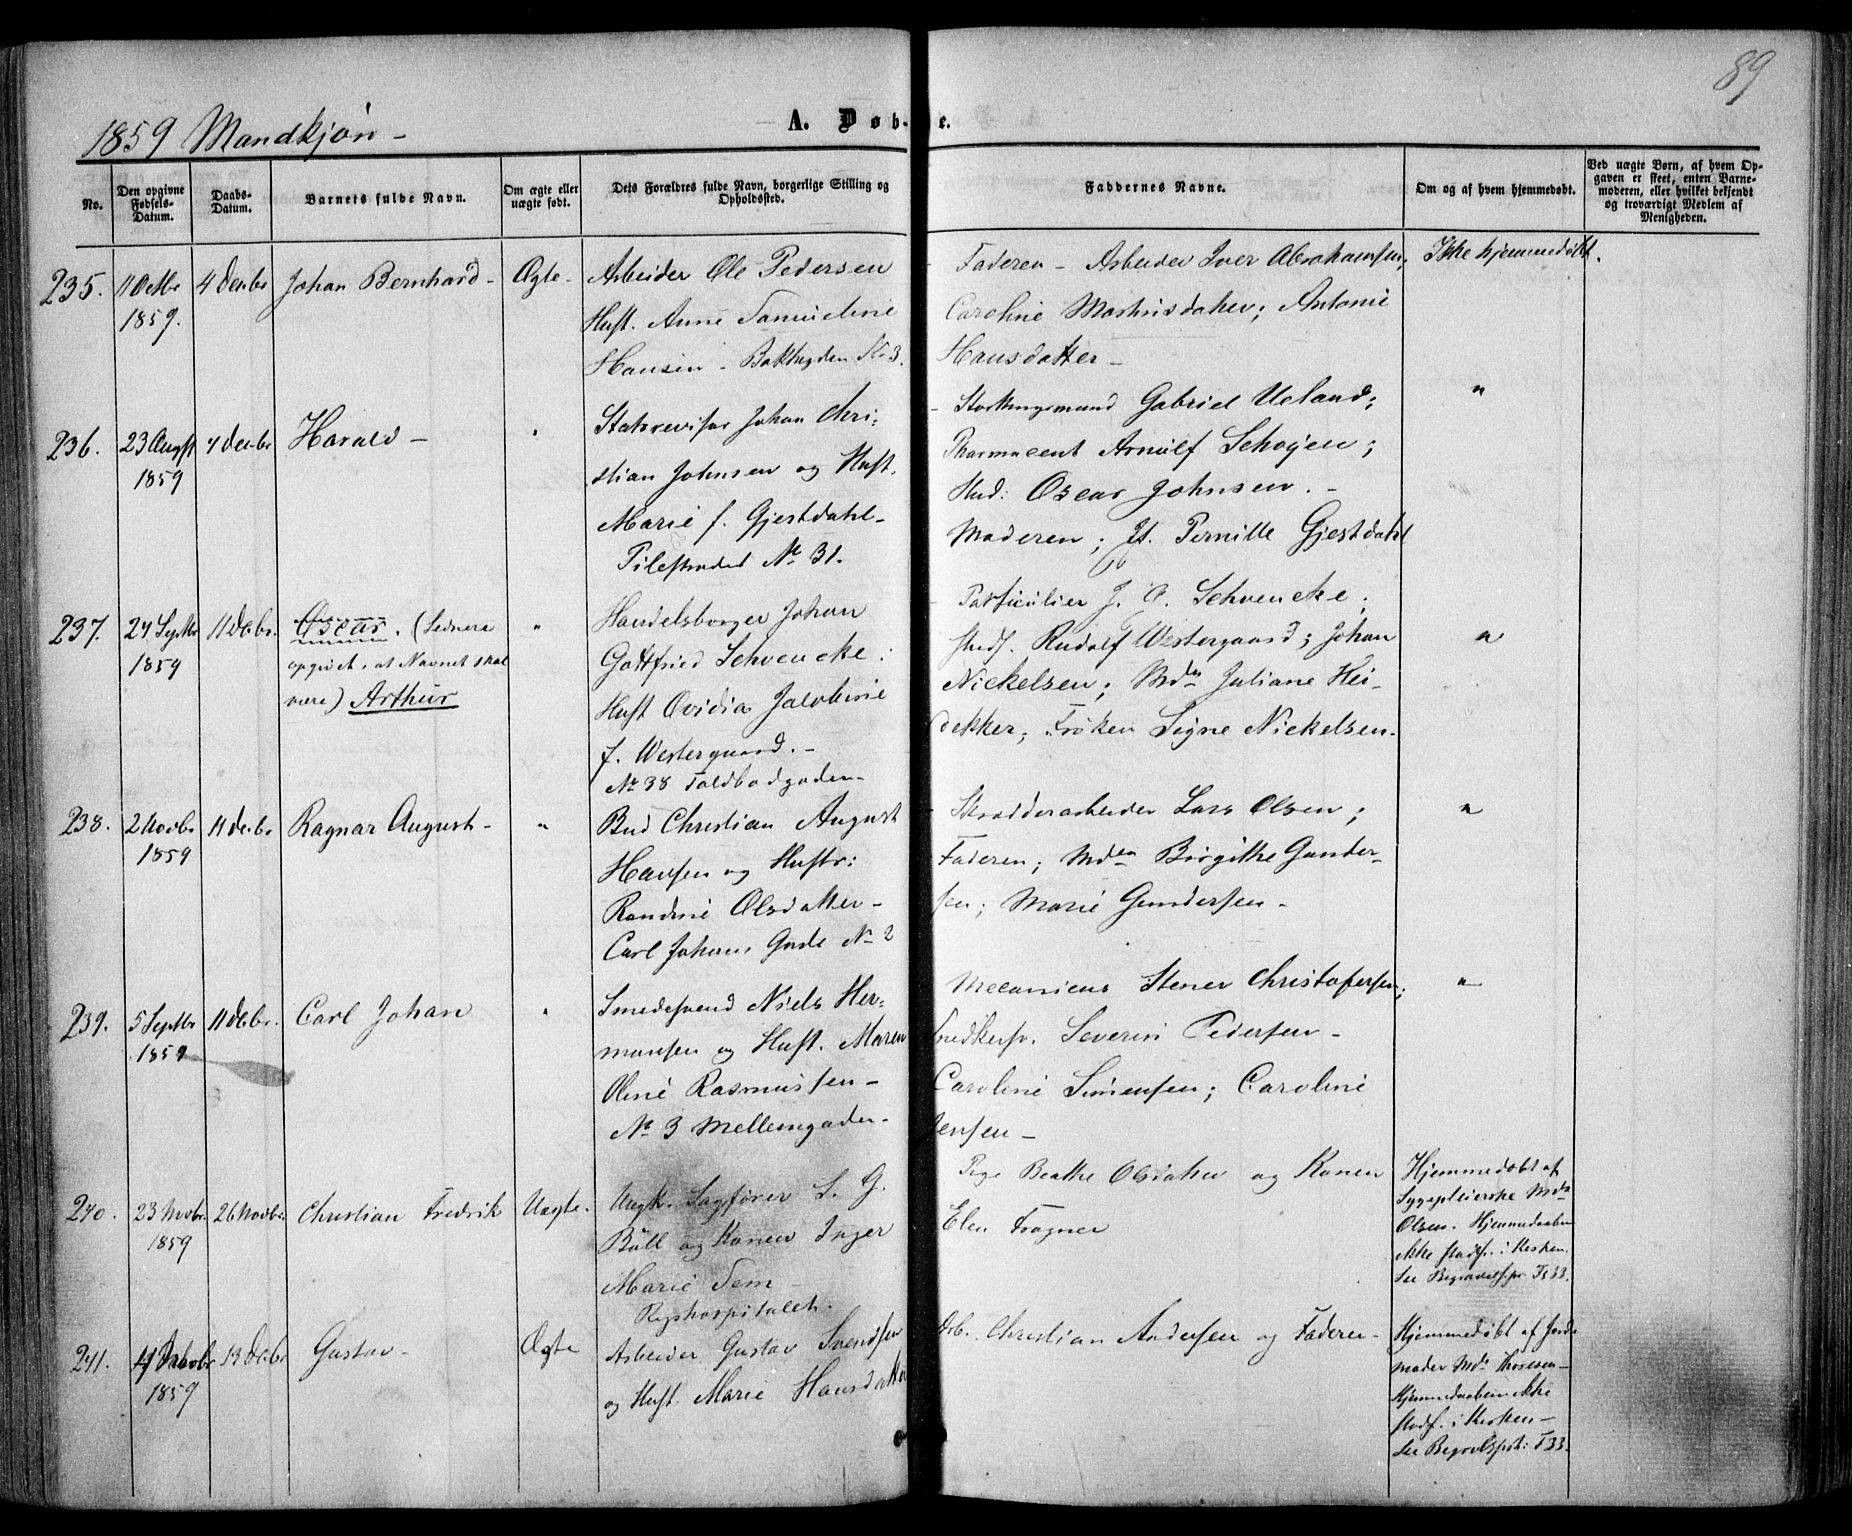 89
1859 Mandkjøn -
A. Døbte.
No.
Den opgivne Fødsels-Datum.
Daabs-Datum.
Barnets fulde Navn.
Om ægte eller uægte født.
Dets Forældres fulde Navn, borgerlige Stilling og Opholdssted.
Faddernes Navne.
Om og af hvem hjemmedøbt.
Ved uægte Børn, af hvem Opgaven er skeet, enten Barnemoderen, eller hvilket bekjendt og troværdigt Medlem af Menigheden.
235.
1859.
4 Decbr
Johan Bernhard -
Ægte -
Arbeider Ole Pedersen
Hust. Anne
Hansen -
Faderen - Arbeider Iver Abrahamsen;
Caroline
Antonie
Hansdatter -
Ikke hjemmedøbt.
236.
23 Augst
1859
4 Decbr
Harald -
"
Statsrevisor Johan Chri-
stian Johnsen og Hust.
Marie f. Gjestdahl -
Pilestrædet No 31.
Storthingsmand Gabriel Ueland;
Pharmaceut Arnulf Schøyen;
Stud: Oscar Johnsen. -
Moderen; Pernille Gjestdahl
"
237.
24 Septbr
1859
11 Decbr.
Oscar. (Sednere
opgivet, at Navnet skal
være) Arthur
"
Handelsborger Johan
Gottfried Schvencke:
Hust Ovidia Jacobine
f. Westergaard. -
No 38 Toldbodgaden -
Particulier J. C. Schvencke;
Stud. Rudolf Westergaard; Johan
Nickelsen; Mdm Juliane Hei-
dekker; Frøken Signe Nickelsen.
"
238.
2 Novbr
1859
11 Decbr
Ragnar August -
"
Bud Christian August
Hansen og Hustr:
Randine Olsdatter -
Carl Johans Gade No 2
Skrædderarbeider Lars Olsen;
Faderen; Mdm Birgithe Gunder-
sen; Marie Gundersen -
"
239.
5 Septbr
1859
11 Decbr.
Carl Johan
"
Smedesvend Niels Her-
mansen og Hust. Maren
Oline Rasmussen -
No 3 Mellemgaden -
Mecanicus Stener Christofersen;
Snedkersv. Severin Pedersen -
Caroline Simensen; Caroline
Jensen -
"
240.
23 Novbr.
1859
26 Novbr.
Christian Fredrik
Uægte.
Ungk. Sagfører S. G.
Bull og Konen Inger
Marie Tem
Rigshospitalet.
Pige Beathe Olsdatter og Konen
Elen Fragner
Hjemmedøbt af
Sygepleierske Mdm
Olsen. Hjemmedaaben
ikke stadf. i Kirken.
See Begravelsspr.
241.
1859
13 Decbr
Gustav -
Ægte
Arbeider Gustav Svendsen
og Hust. Marie Hansdatter
Arb. Christian Andersen og Faderen -
Hjemmedøbt af Jorde
moder Mdm Thoresen -
Hjemmedaaben ikke
stadf. i Kirken -
See